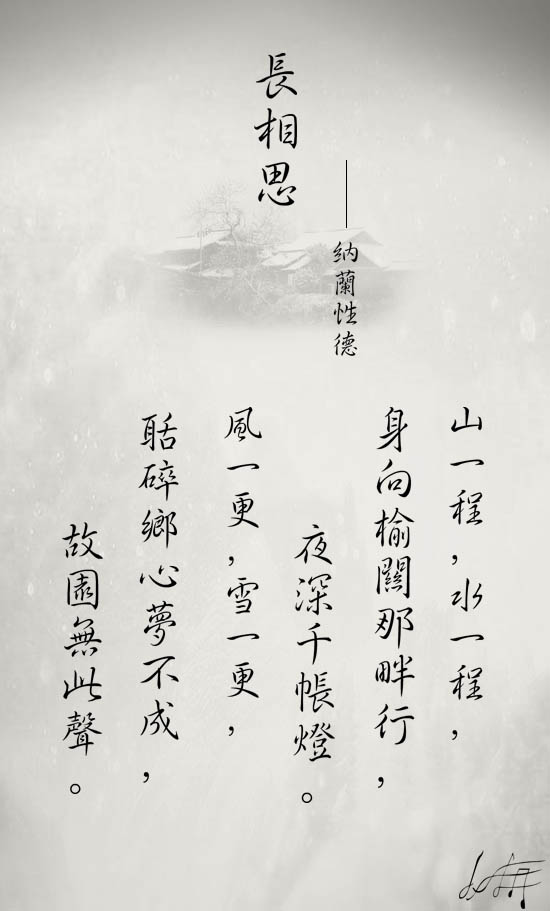 長相思
——納蘭性德
山一程,水一程,
身向榆關那畔行,
夜深千帳燈。
風一更,雪一更,
聒碎鄉心夢不成,
故園無此聲。